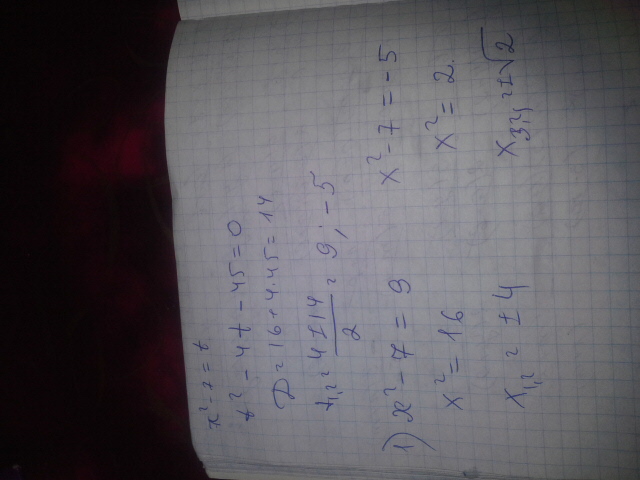 x² - 7 = t
t² - 4t - 45 = 0
D = 16 + 4·45 = 14
t₁,₂ = (4 ± 14)/2 = 9; -5
1) x² - 7 = 9
x² = 16
x₁,₂ = ±4
x² - 7 = -5
x² = 2.
x₃,₄ = ±√2